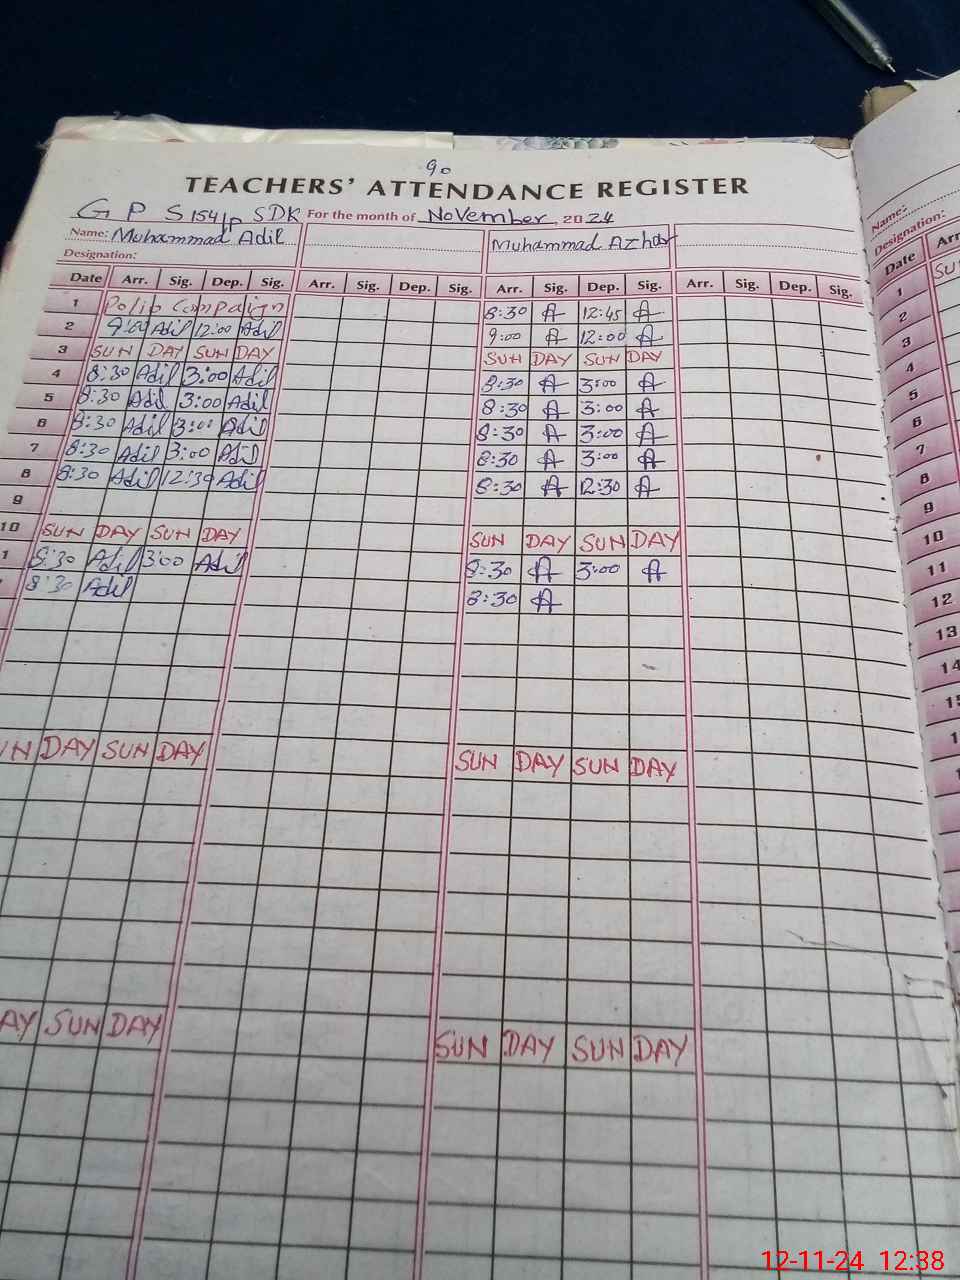 90
TEACHERS' ATTENDANCE REGISTER
G P S 154/p SDK For the month of November, 2024
Name: Muhammad Adil Muhammad Azhar
Designation:
Date Arr. Sig. Dep. Sig. Arr. Sig. Dep. Sig. Arr. Sig. Dep. Sig. Arr. Sig. Dep. Sig.
1 Polio Campaign 8:30 A 12:45 A
2 9:00 Adil 12:00 Adil 9:00 A 12:00 A
3 SUN DAY SUN DAY SUN DAY SUN DAY
4 8:30 Adil 3:00 Adil 8:30 A 3:00 A
5 8:30 Adil 3:00 Adil 8:30 A 3:00 A
6 8:30 Adil 3:00 Adil 8:30 A 3:00 A
7 8:30 Adil 3:00 Adil 8:30 A 3:00 A
8 8:30 Adil 12:30 Adil 8:30 A 12:30 A
9
10 SUN DAY SUN DAY SUN DAY SUN DAY
1 8:30 Adil 3:00 Adil 8:30 A 3:00 A
8:30 Adil 8:30 A
UN DAY SUN DAY SUN DAY SUN DAY
AY SUN DAY SUN DAY SUN DAY
Name:
Designation:
Date Arr
1 SU
2
3
4
5
6
7
8
9
10
11
12
13
14
15
1
1
12-11-24 12:38